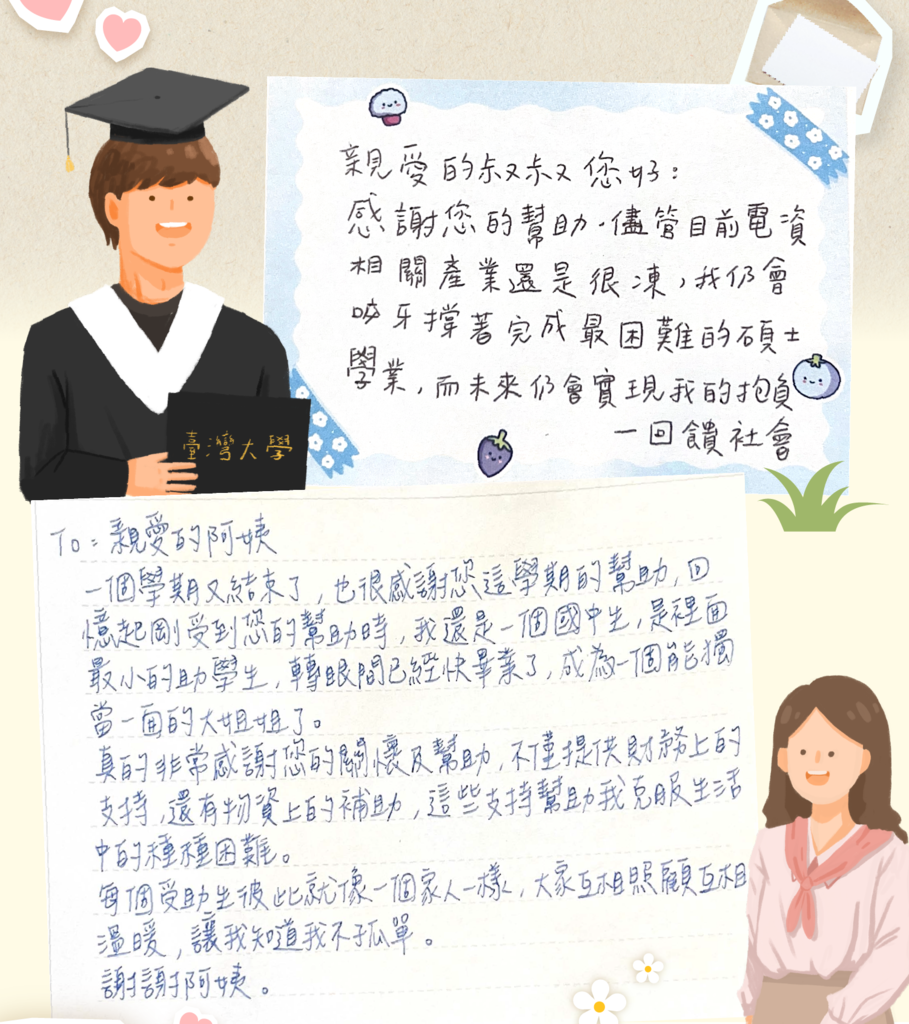 親愛的叔叔您好:
感謝您的幫助,儘管目前電資
相關產業還是很凍,我仍會
咬牙撐著完成最困難的碩士
學業,而未來仍會實現我的抱負
—回饋社會
臺灣大學
To:親愛的阿姨
一個學期又結束了,也很感謝您這學期的幫助,回
憶起剛受到您的幫助時,我還是一個國中生,是裡面
最小的助學生,轉眼間已經快畢業了,成為一個能獨
當一面的大姐姐了。
真的非常感謝您的關懷及幫助,不僅提供財務上的
支持,還有物資上的補助,這些支持幫助我克服生活
中的種種困難。
每個受助生彼此就像一個家人一樣,大家互相照顧互相
溫暖,讓我知道我不孤單。
謝謝阿姨。